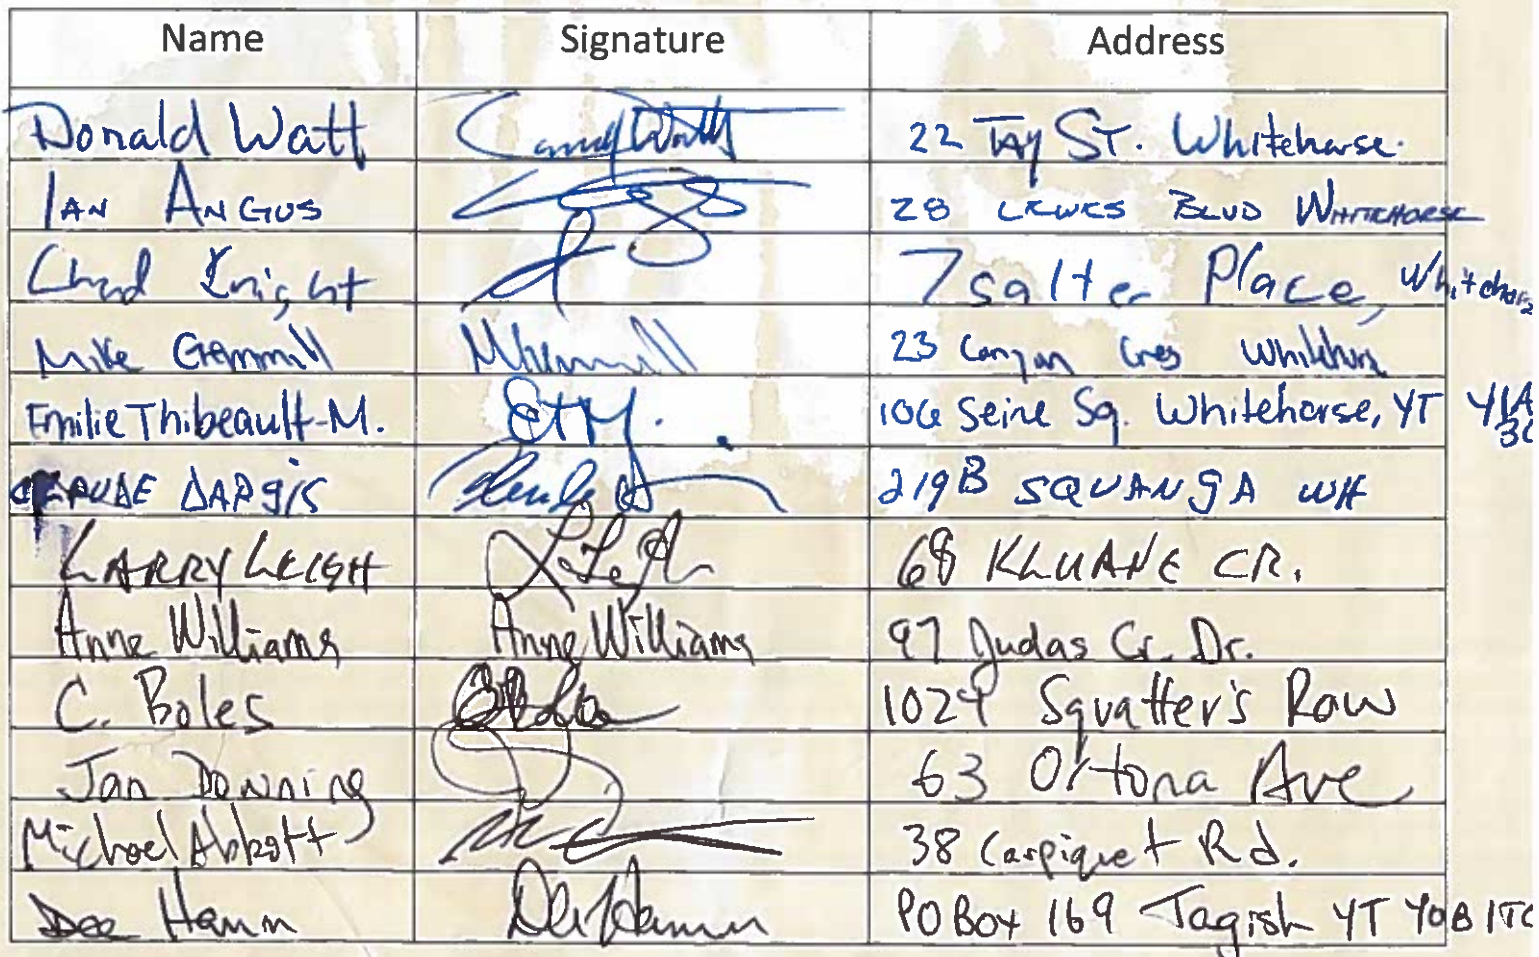 Name Signature Address
Donald Watt Candy Watt 22 Tay St. Whitehorse.
Ian Angus 28 Lewes Blvd Whitehorse
Chad Knight 7 Salter Place, Whitehorse
Mike Gemmill MGemmill 23 Canyon Cres Whitehorse
Emilie Thibeault-M. ETM. 106 Seine Sq. Whitehorse, YT Y1A
3C
CLAUDE DARGIS Claude D 219B SQUANGA WH
LARRY LEIGH L. Leigh 68 KLUANE CR.
Anne Williams Anne Williams 97 Judas Cr. Dr.
C. Boles 1024 Squatter's Row
Jan Downing 63 Ortona Ave
Michael Abbott 38 Carpiquet Rd.
Dee Hamm Dee Hamm PO Box 169 Tagish YT Y0B 1T0